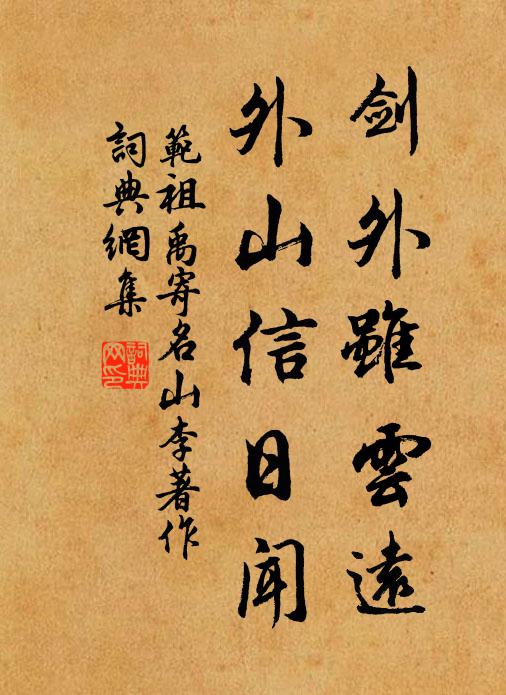 剑外雖雲遠
外山信日闻
範祖禹寄名山李著作
詞典網集
詞典網印